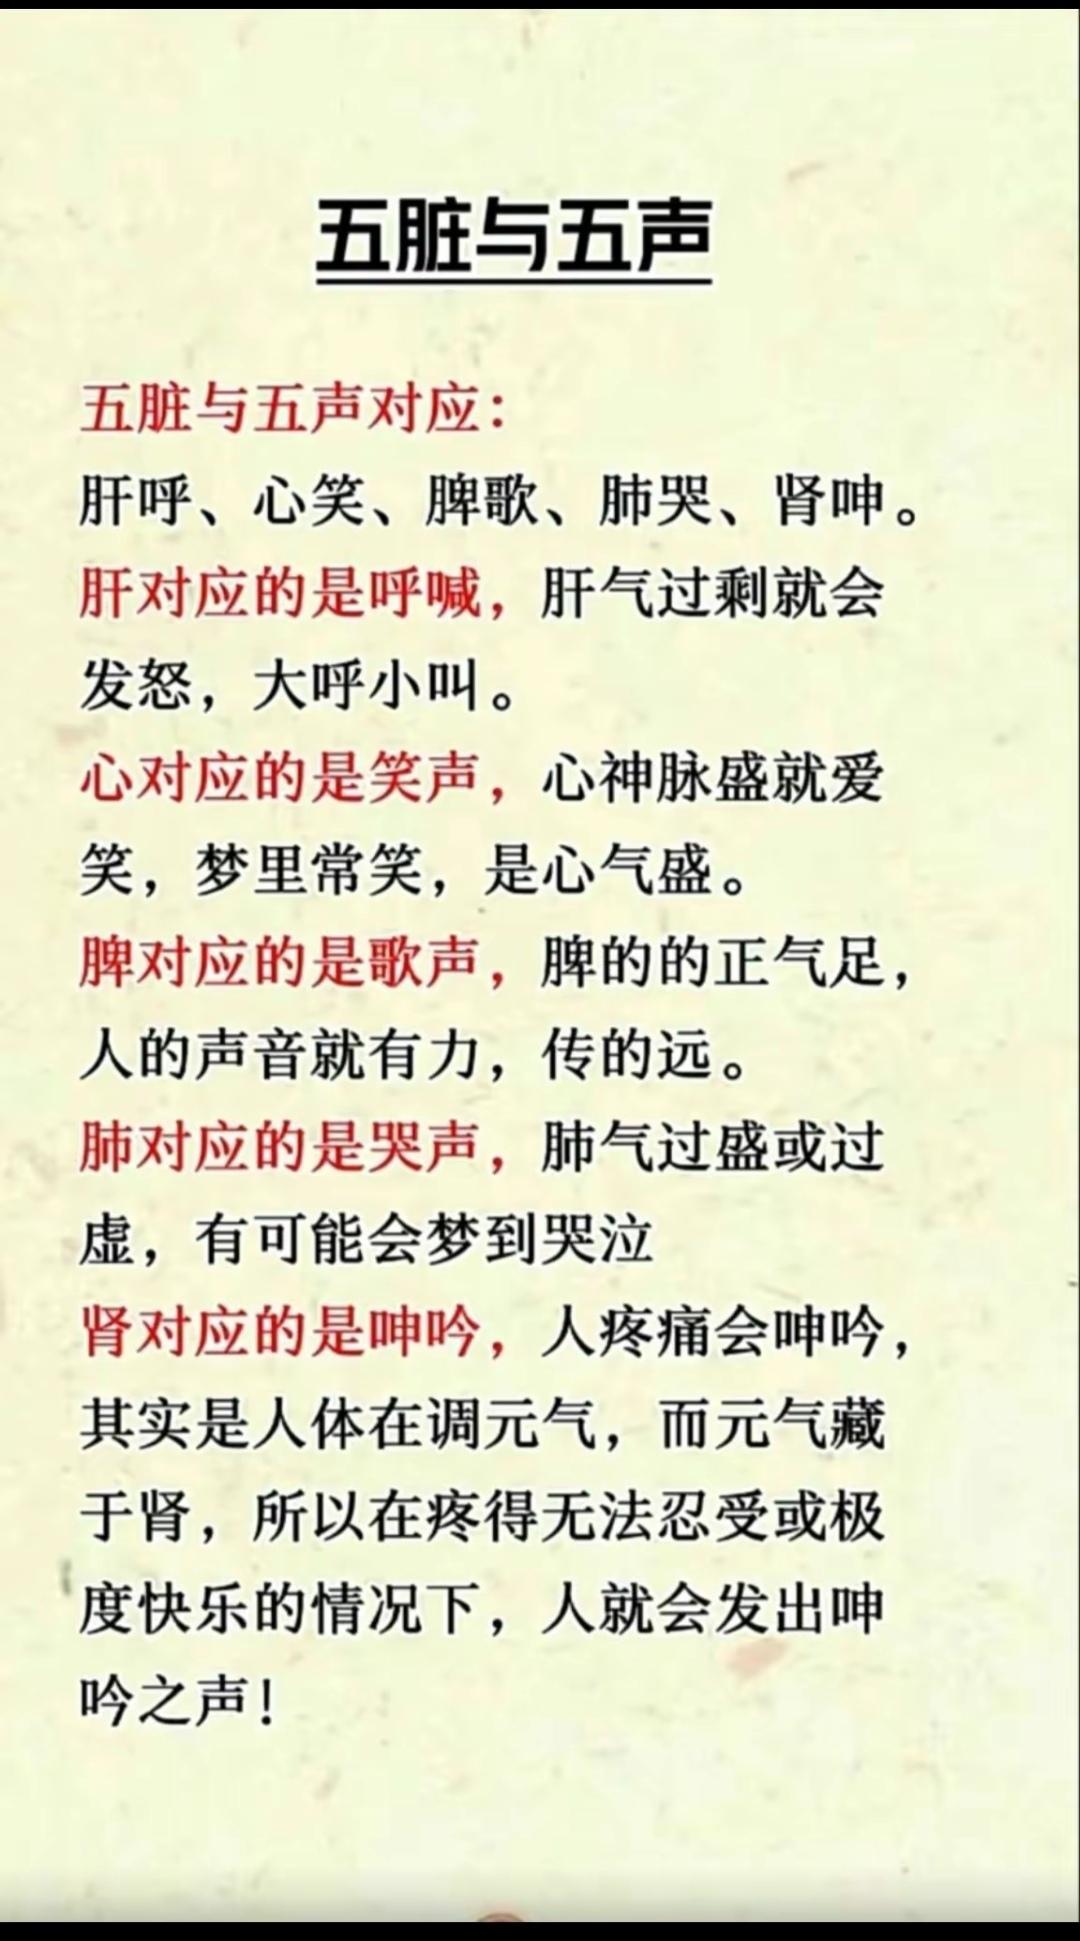 五脏与五声
五脏与五声对应：
肝呼、心笑、脾歌、肺哭、肾呻。
肝对应的是呼喊，肝气过剩就会
发怒，大呼小叫。
心对应的是笑声，心神脉盛就爱
笑，梦里常笑，是心气盛。
脾对应的是歌声，脾的的正气足，
人的声音就有力，传的远。
肺对应的是哭声，肺气过盛或过
虚，有可能会梦到哭泣
肾对应的是呻吟，人疼痛会呻吟，
其实是人体在调元气，而元气藏
于肾，所以在疼得无法忍受或极
度快乐的情况下，人就会发出呻
吟之声！